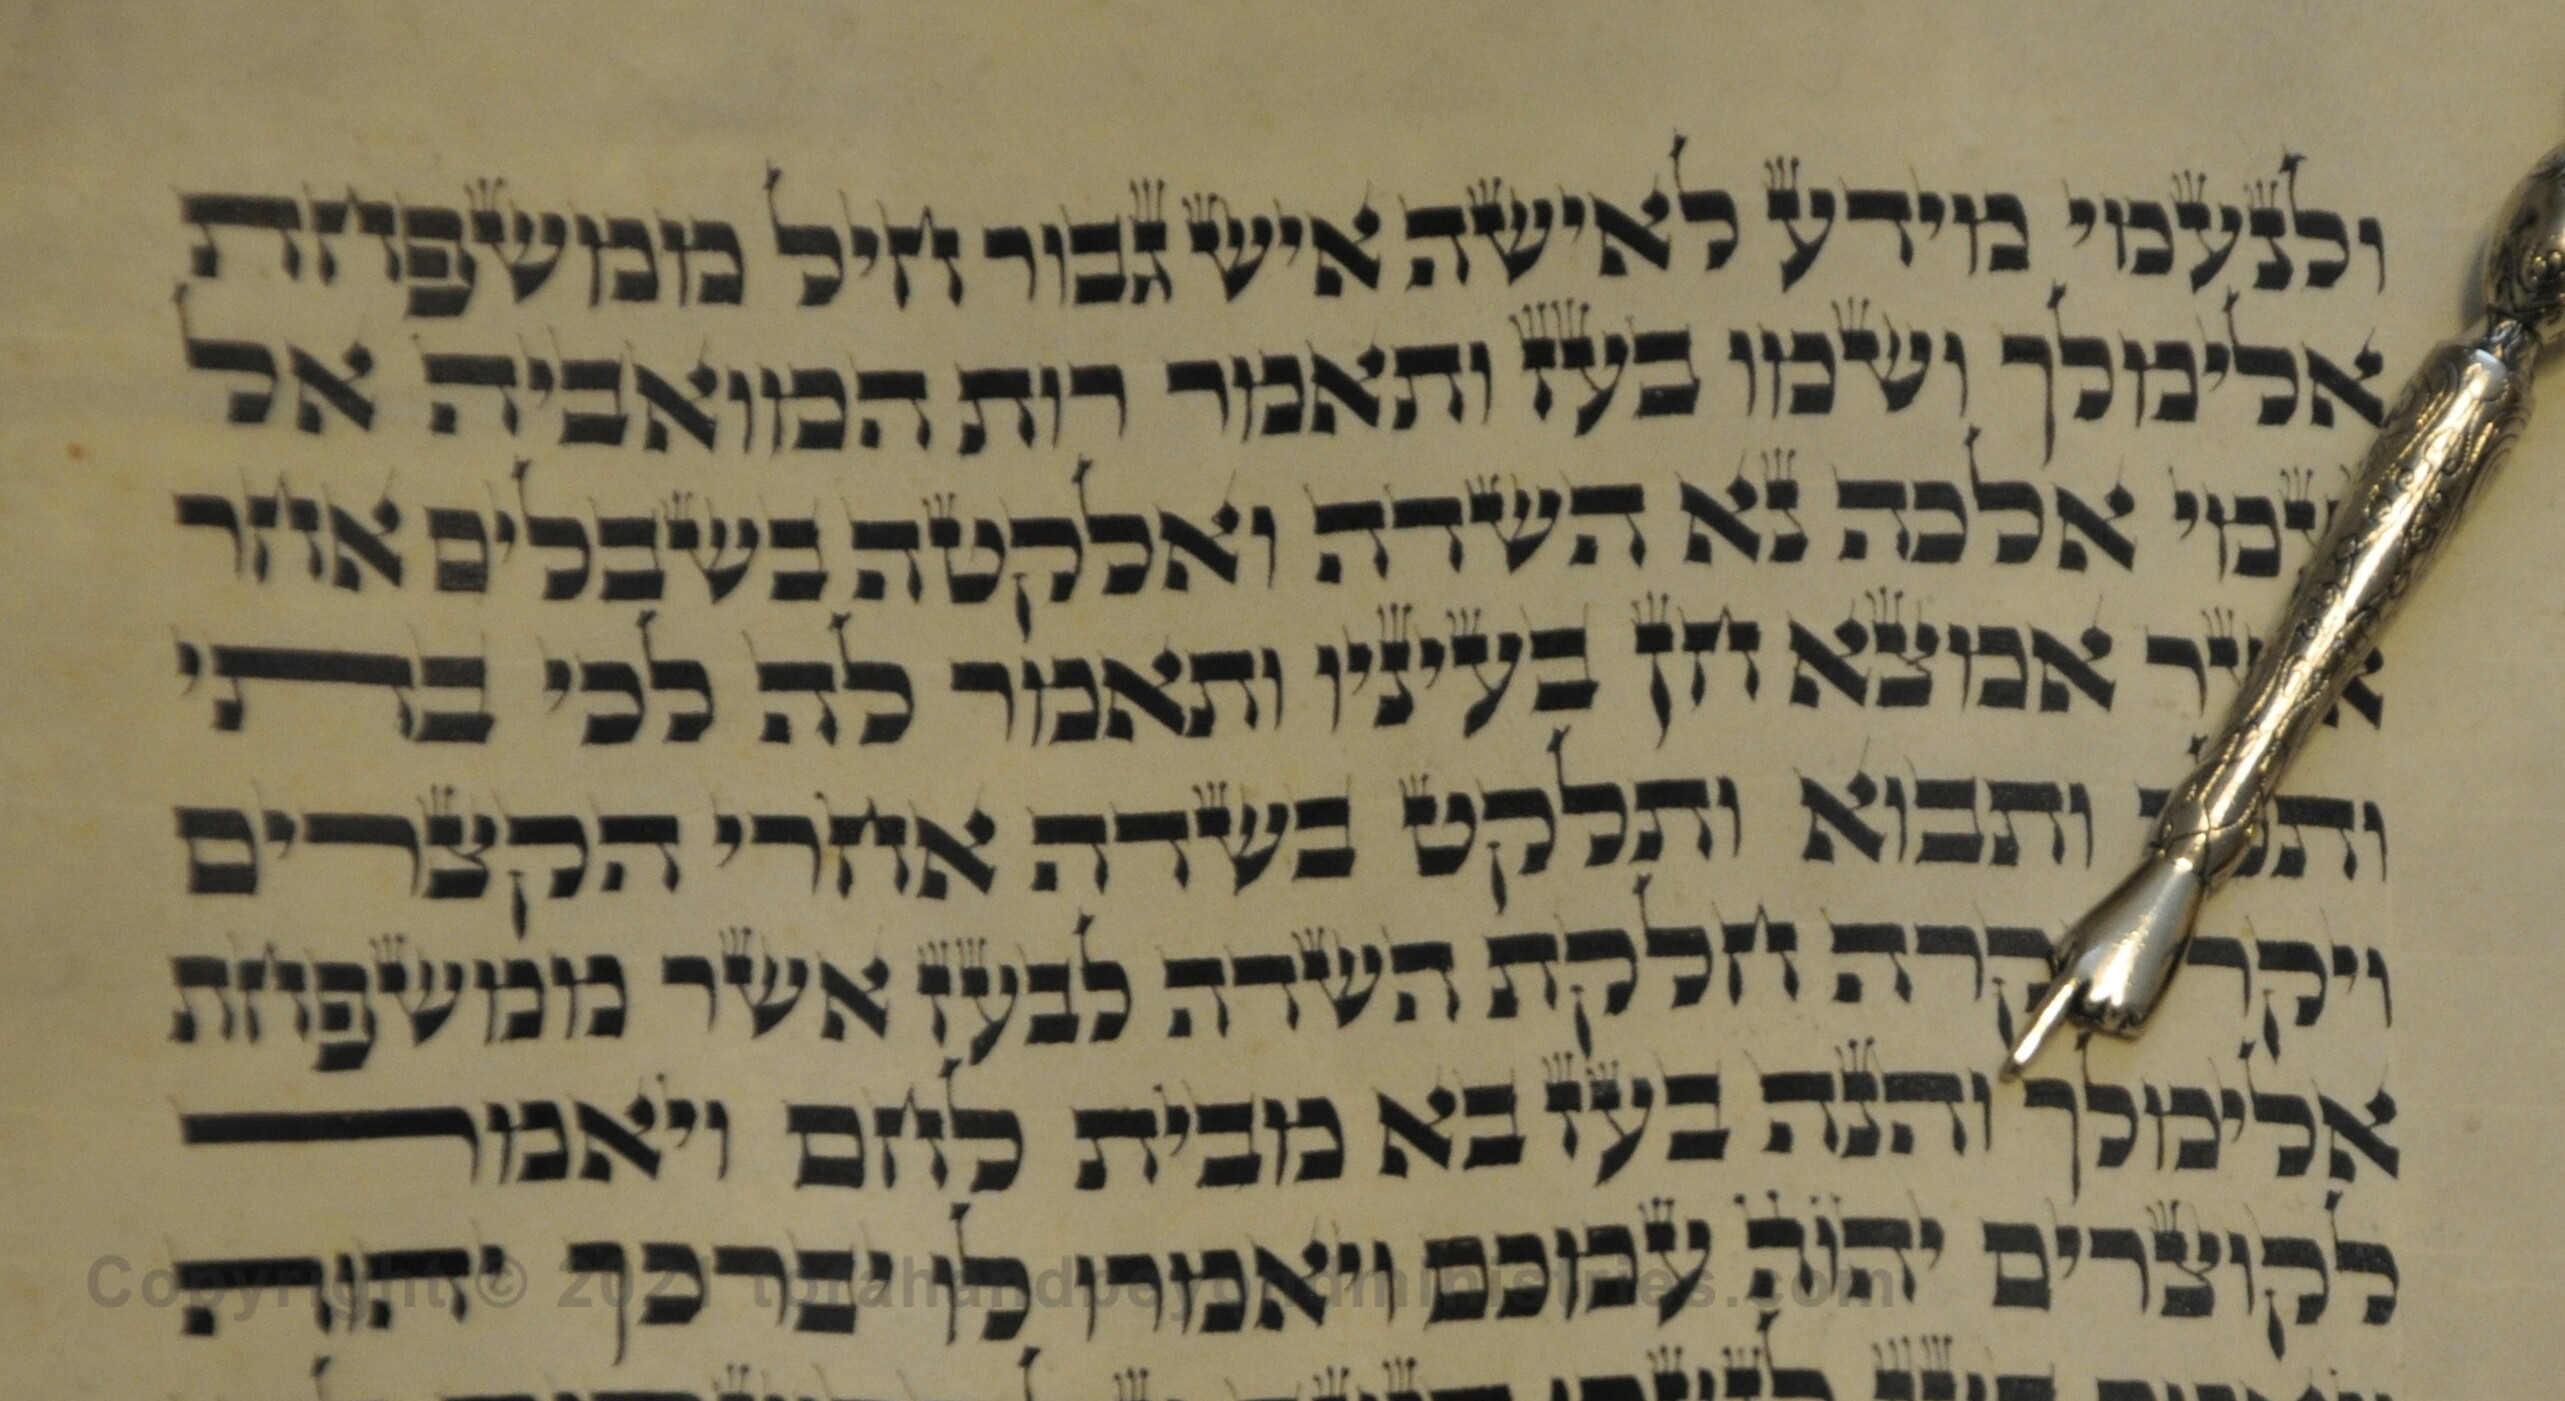 ולנעמי מידע לאישה איש גבור חיל ממשפחת
אלימלך ושמו בעז ותאמר רות המואביה אל
אלכה נא השדה ואלקטה בשבלים אחר
אמצא חן בעיניו ותאמר לה לכי בתי
ותבוא ותלקט בשדה אחרי הקצרים
ויקר חלקת השדה לבעז אשר ממשפחת
אלימלך והנה בעז בא מבית לחם ויאמר
לקוצרים יהוה עמכם ויאמרו לו יברכך יהוה
Copyright © 2021 torahandbeyondministries.com